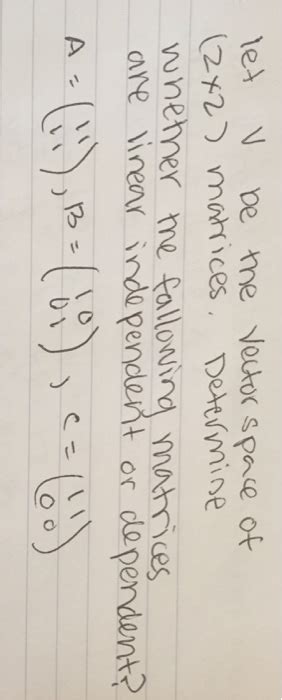 let V be the vector space of
(2x2) matrices. Determine
whether the following matrices
are linear independent or dependent?
A = (1 1
1 1), B = (1 0
0 1), C = (1 1
0 0)